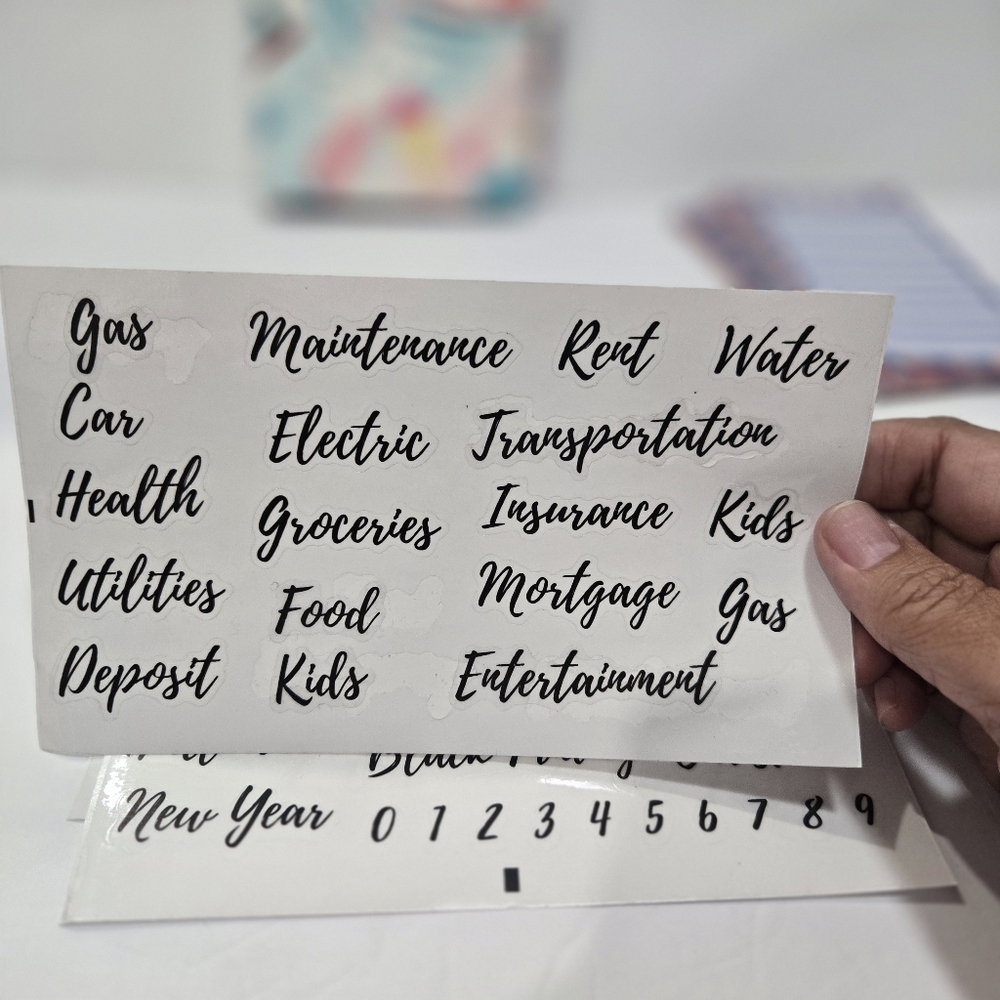 Gas Maintenance Rent Water
Car Electric Transportation
Health Groceries Insurance Kids
Utilities Food Mortgage Gas
Deposit Kids Entertainment
New Year 0 1 2 3 4 5 6 7 8 9